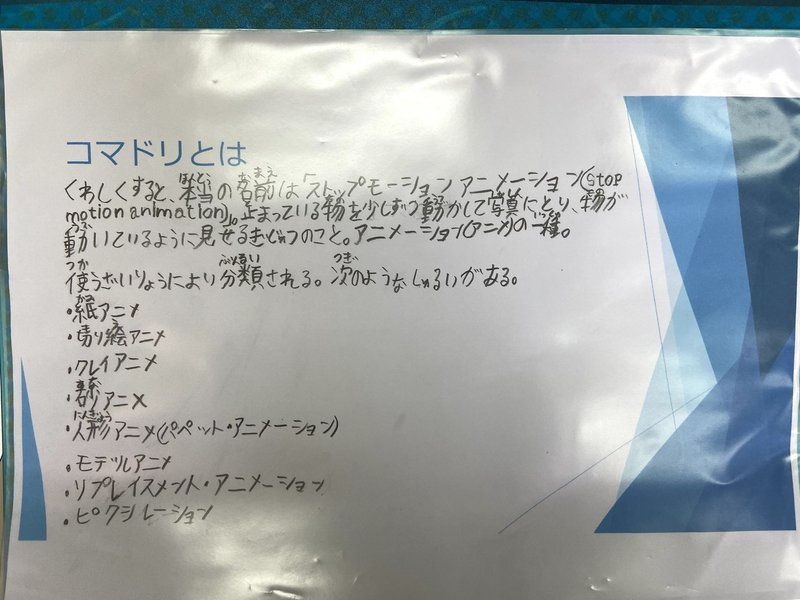 コマドリとは
くわしくすると、本当の名前は「ストップモーションアニメーション(stop
motion animation)」。止まっている物を少しずつ動かして写真にとり、物が
動いているように見せるぎじゅつのこと。アニメーション(アニメ)の一種。
使うざいりょうにより分類される。次のようなしゅるいがある。
・紙アニメ
・切り絵アニメ
・クレイアニメ
・砂アニメ
・人形アニメ(パペット・アニメーション)
・モデルアニメ
・リプレイスメント・アニメーション
・ピクシレーション